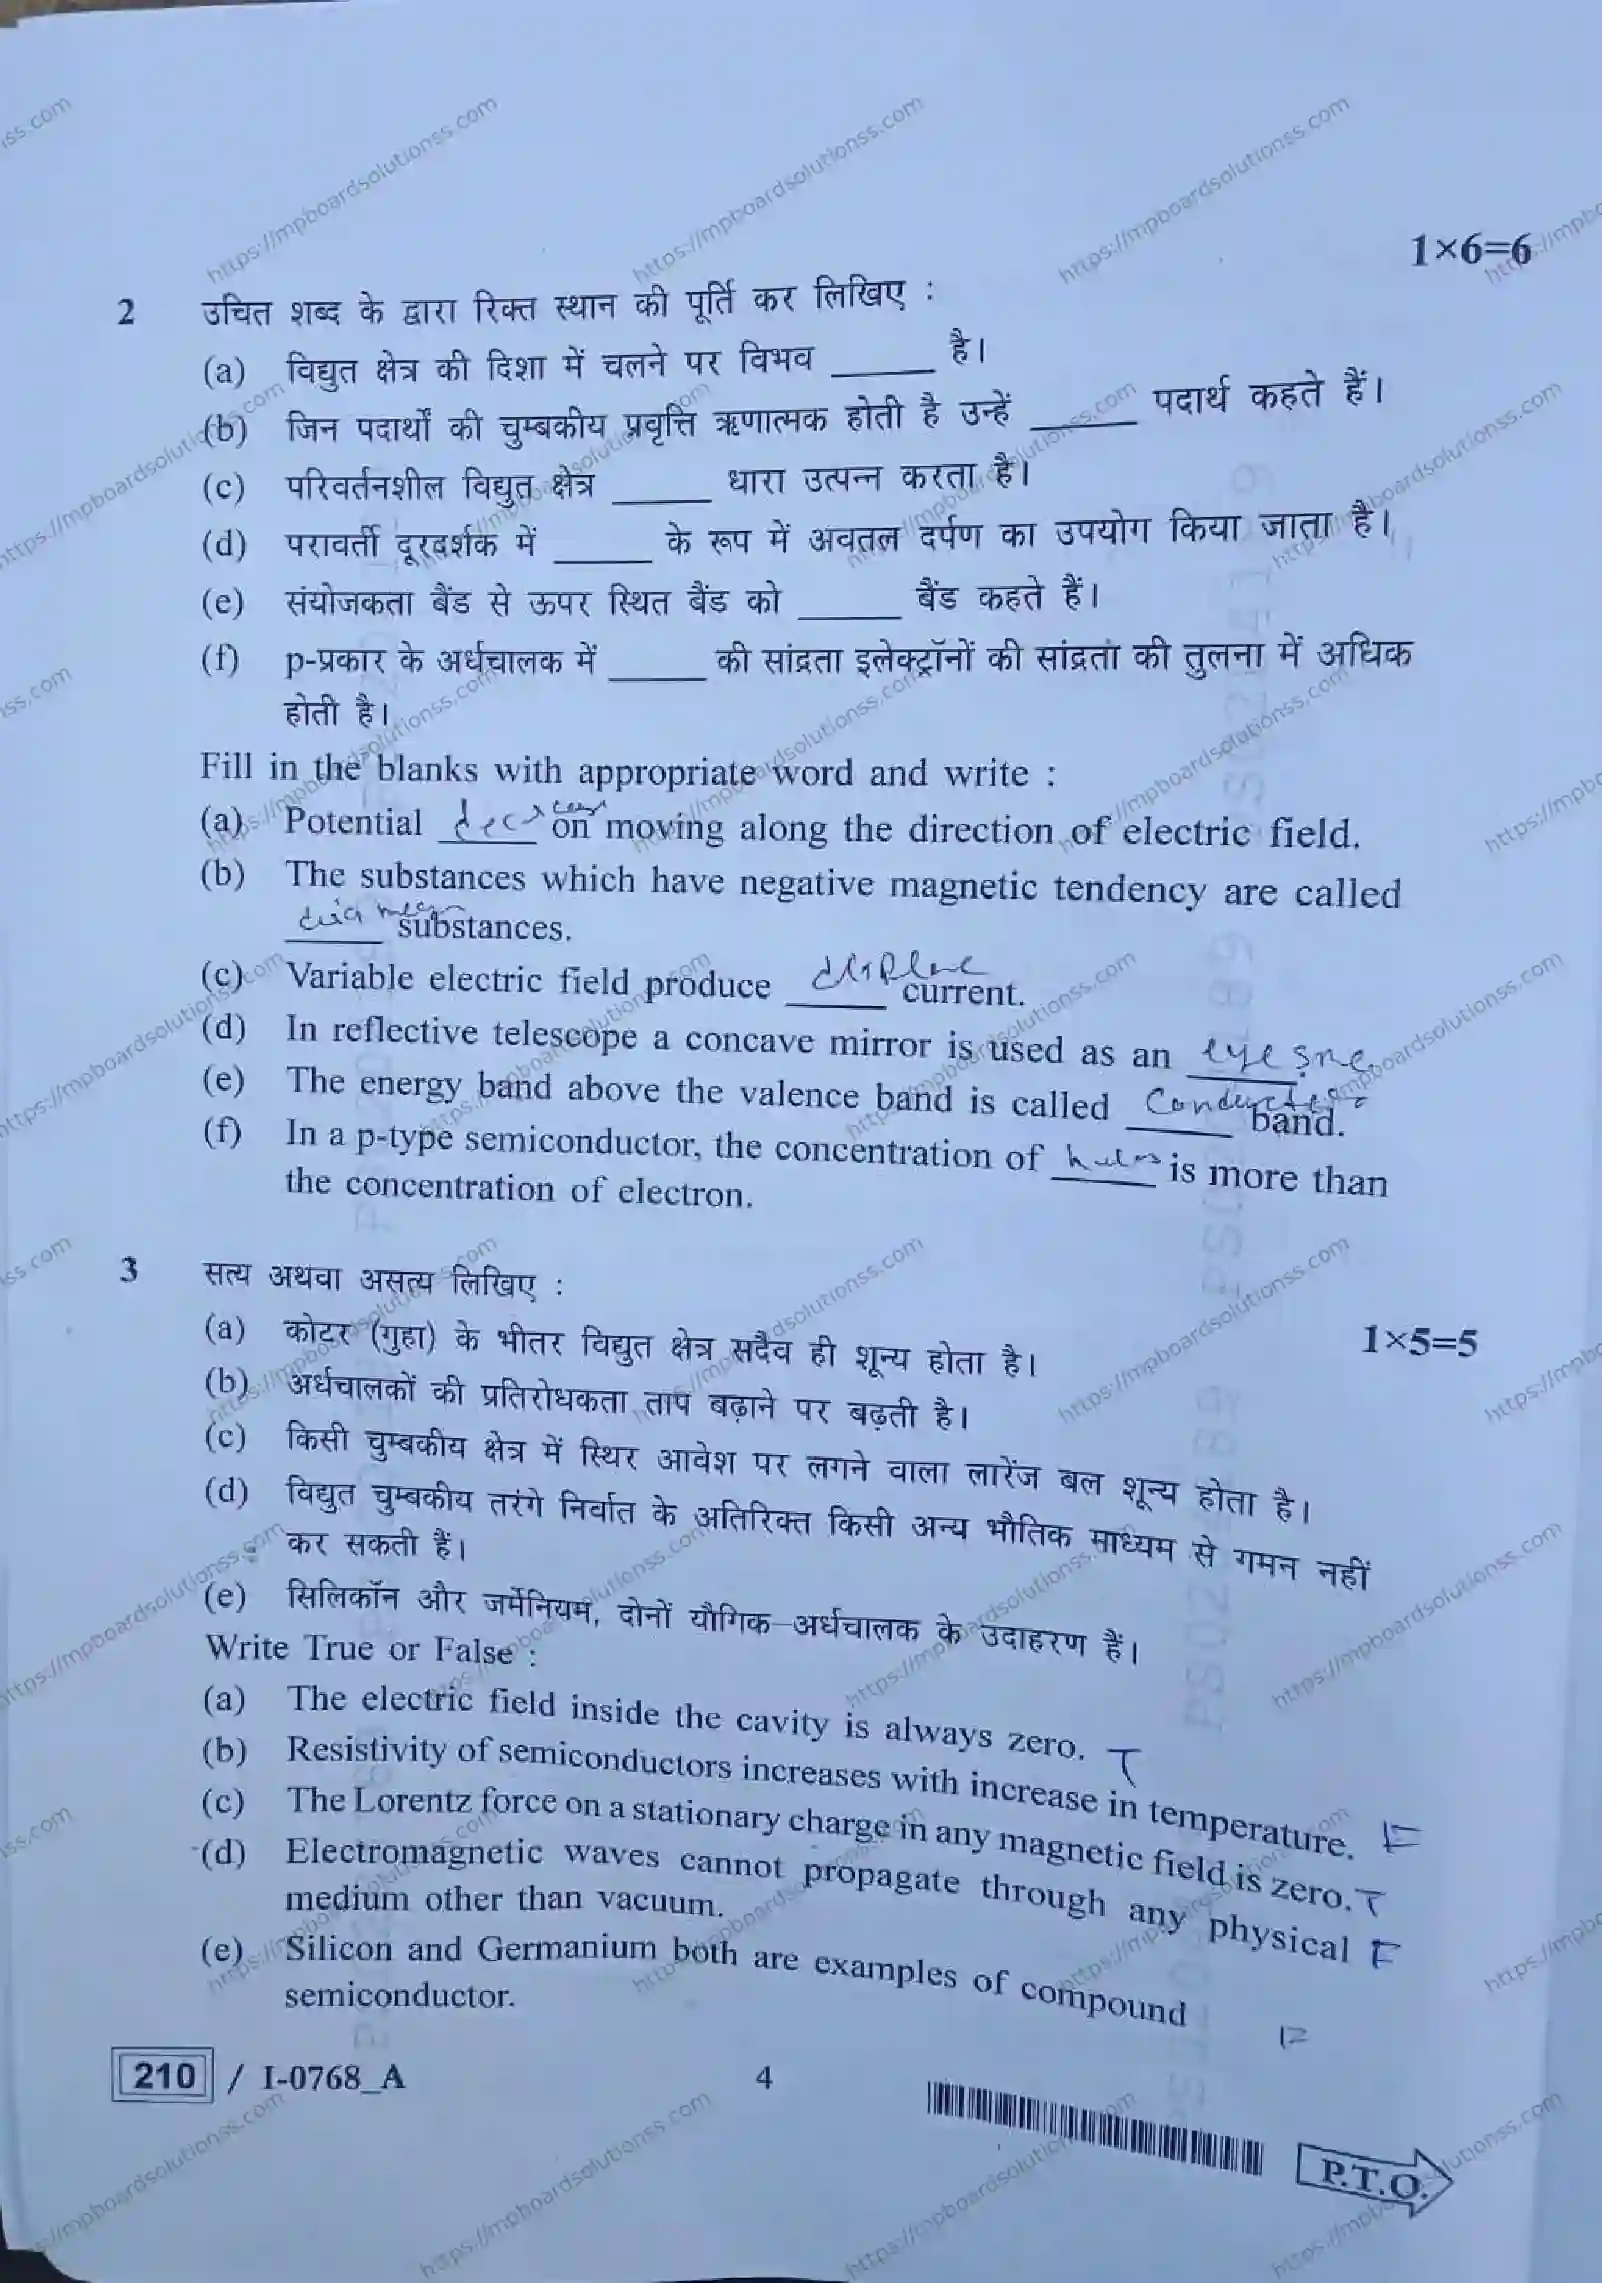 1×6=6
2 उचित शब्द के द्वारा रिक्त स्थान की पूर्ति कर लिखिए :
(a) विद्युत क्षेत्र की दिशा में चलने पर विभव _____ है।
(b) जिन पदार्थों की चुम्बकीय प्रवृत्ति ऋणात्मक होती है उन्हें _____ पदार्थ कहते हैं।
(c) परिवर्तनशील विद्युत क्षेत्र _____ धारा उत्पन्न करता है।
(d) परावर्ती दूरदर्शक में _____ के रूप में अवतल दर्पण का उपयोग किया जाता है।
(e) संयोजकता बैंड से ऊपर स्थित बैंड को _____ बैंड कहते हैं।
(f) p-प्रकार के अर्धचालक में _____ की सांद्रता इलेक्ट्रॉनों की सांद्रता की तुलना में अधिक
होती है।
Fill in the blanks with appropriate word and write :
(a) Potential _____ on moving along the direction of electric field.
(b) The substances which have negative magnetic tendency are called
_____ substances.
(c) Variable electric field produce _____ current.
(d) In reflective telescope a concave mirror is used as an _____.
(e) The energy band above the valence band is called _____ band.
(f) In a p-type semiconductor, the concentration of _____ is more than
the concentration of electron.
3 सत्य अथवा असत्य लिखिए :
1×5=5
(a) कोटर (गुहा) के भीतर विद्युत क्षेत्र सदैव ही शून्य होता है।
(b) अर्धचालकों की प्रतिरोधकता ताप बढ़ाने पर बढ़ती है।
(c) किसी चुम्बकीय क्षेत्र में स्थिर आवेश पर लगने वाला लारेंज बल शून्य होता है।
(d) विद्युत चुम्बकीय तरंगे निर्वात के अतिरिक्त किसी अन्य भौतिक माध्यम से गमन नहीं
कर सकती हैं।
(e) सिलिकॉन और जर्मेनियम, दोनों यौगिक-अर्धचालक के उदाहरण हैं।
Write True or False :
(a) The electric field inside the cavity is always zero. T
(b) Resistivity of semiconductors increases with increase in temperature. F
(c) The Lorentz force on a stationary charge in any magnetic field is zero. T
(d) Electromagnetic waves cannot propagate through any physical F
medium other than vacuum.
(e) Silicon and Germanium both are examples of compound
semiconductor. F
210 / I-0768_A 4
P.T.O.
https://mpboardsolutionss.com